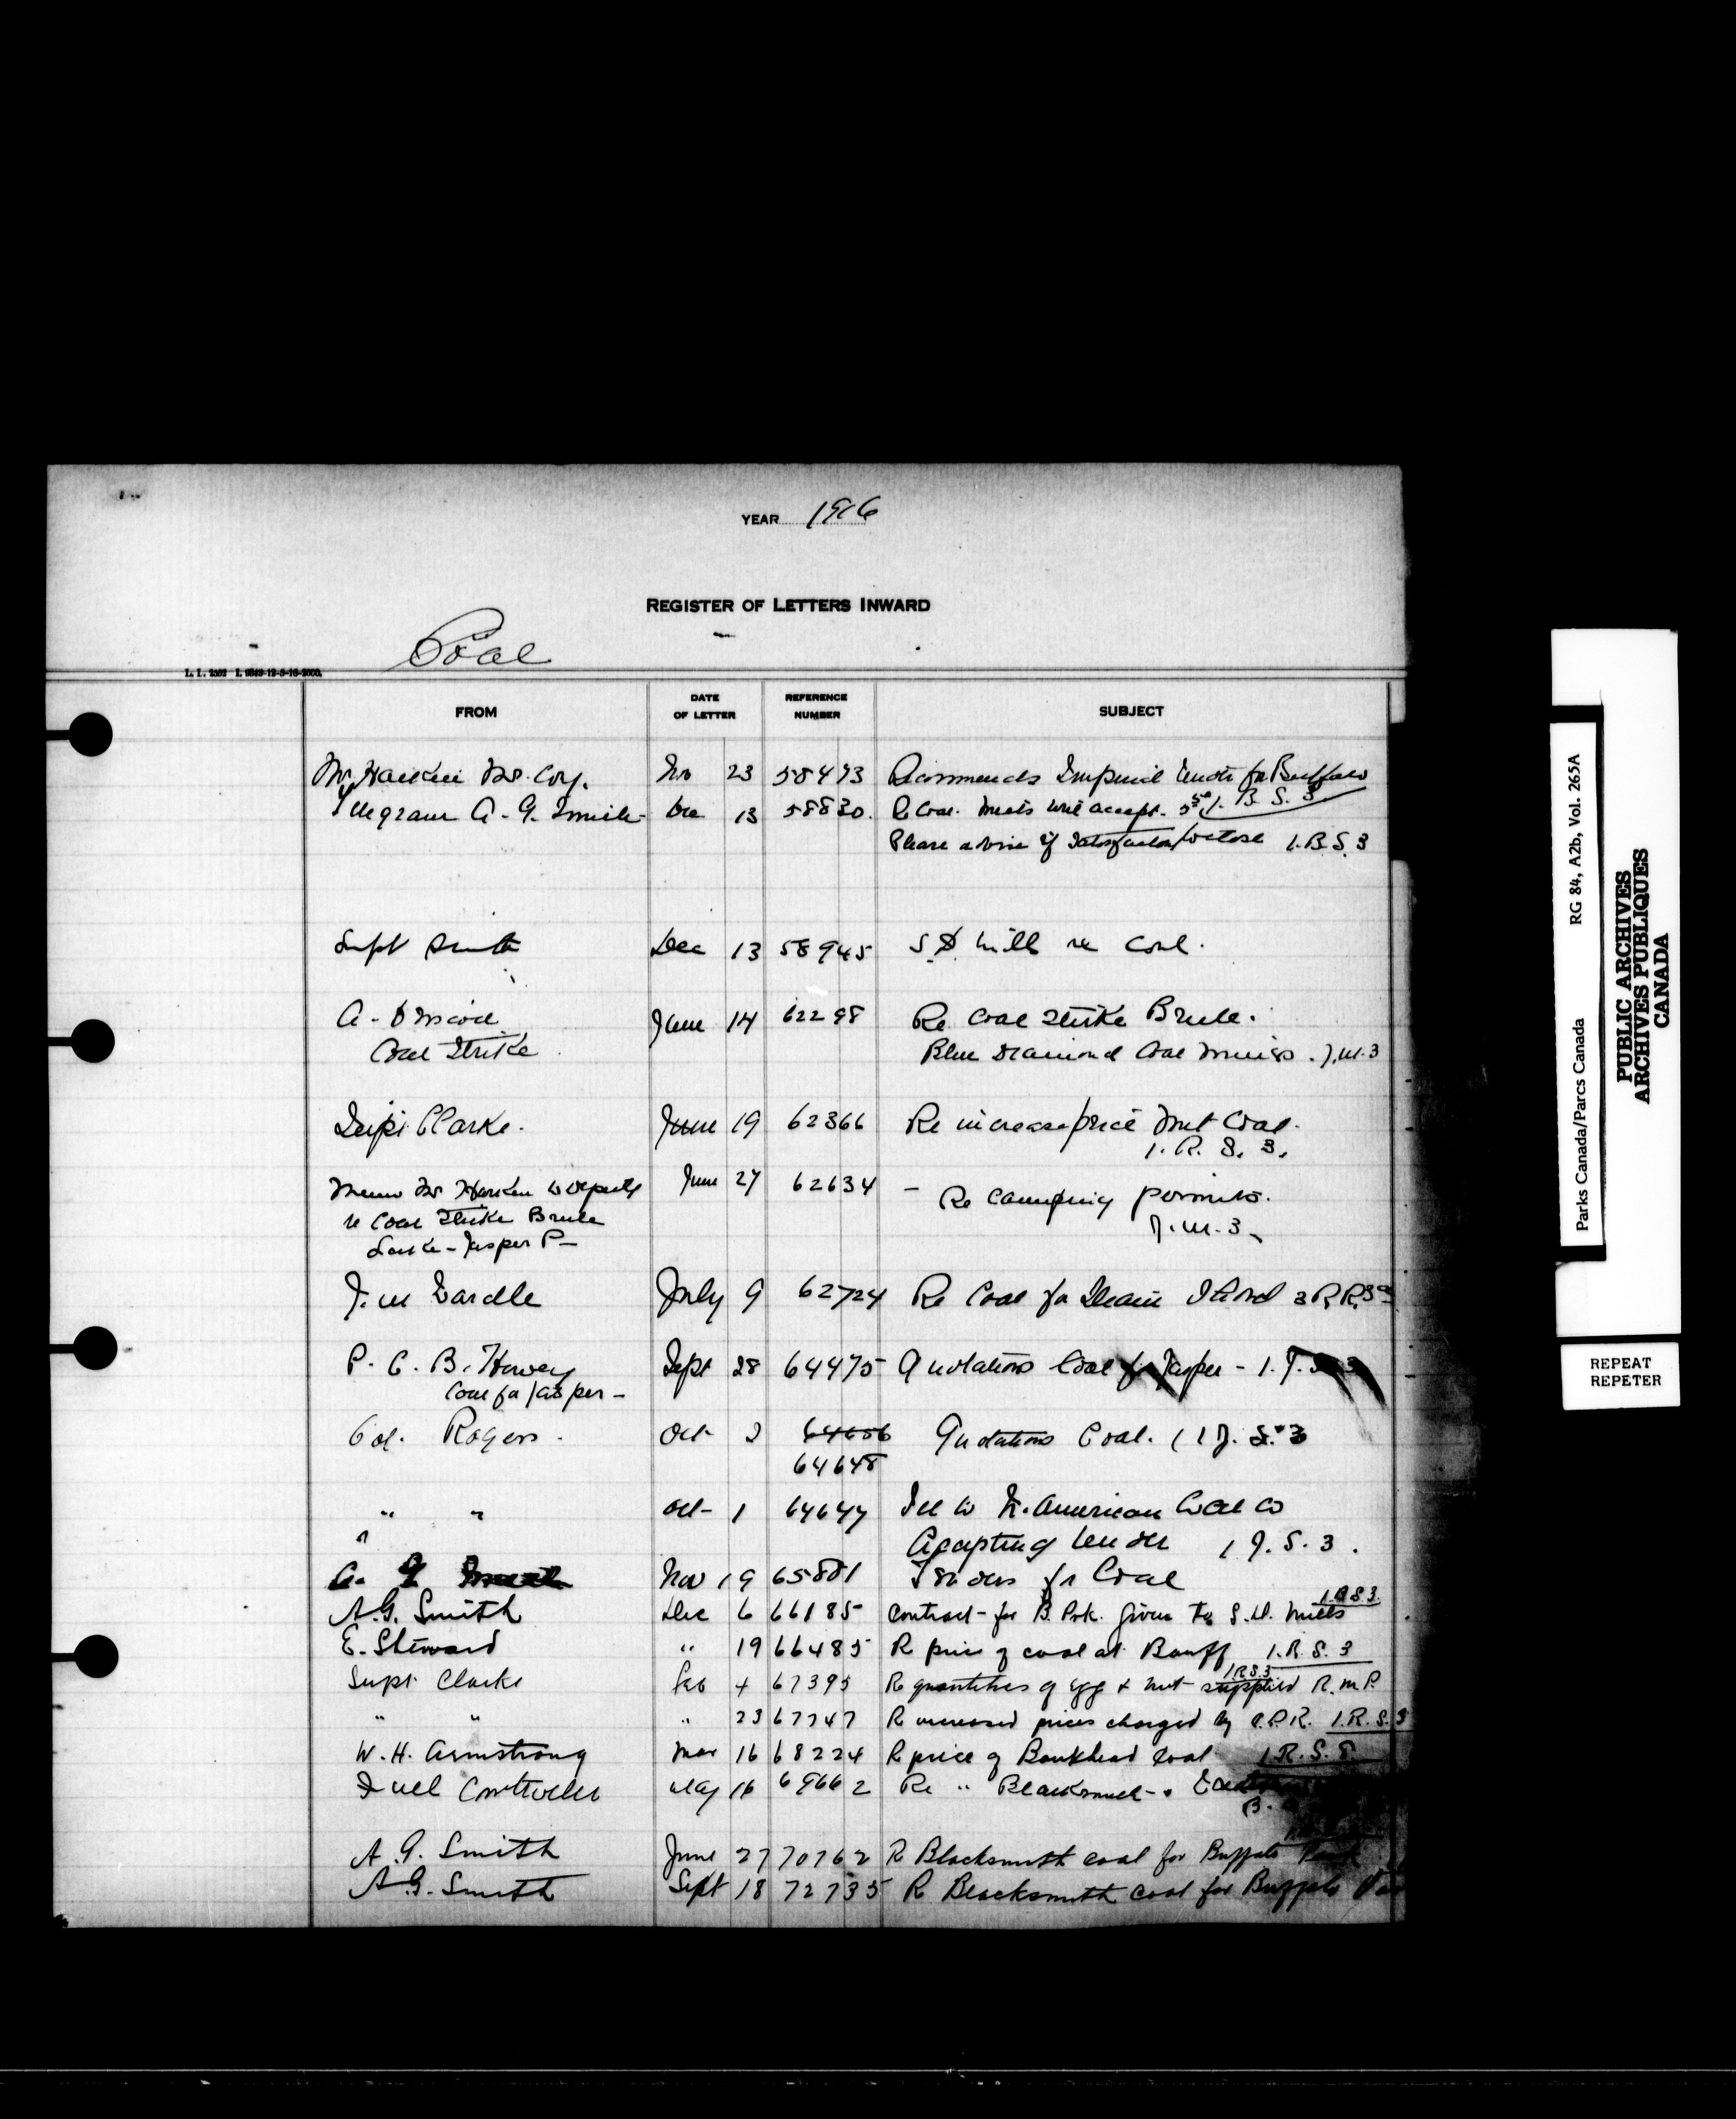 YEAR 1916
REGISTER OF LETTERS INWARD
Coal
L. I. 2502
FROM DATE OF LETTER REFERENCE NUMBER SUBJECT
Nov 23 58473 Recommends Imperial for Buffalo
Telegram A. G. Smith Dec 13 58830. Re Coal. will accept. 1. B. S. 3
Please advise if 1. B. S. 3
Supt Smith Dec 13 58945 S. D. Mills re Coal.
June 14 62298 Re Coal Strike Brule.
Coal Strike Blue Diamond Coal J. M. 3
Supt Clarke. June 19 62366 Re increase price Nut Coal.
1. R. S. 3.
Memo Mr Harkin to Deputy June 27 62634 - Re camping permits.
re Coal Strike Brule J. M. 3
Lake - Jasper P -
J. M Wardle July 9 62724 Re Coal for Steam
P. C. B. Hervey Sept 28 64475 Quotations Coal for Jasper - 1. J. S. 3
Coal for Jasper -
Col. Rogers. Oct 2 64656 Quotations Coal. 1 J. S. 3
64648
" " Oct- 1 64647 to N. American Coal Co
Accepting tender 1 J. S. 3.
A. G Nov 19 65881 Tenders for Coal
1. B S 3.
A. G. Smith Dec 6 66185 Contract - for B. Prk. given to S. D. Mills
E. Steward " 19 66485 R price of coal at Banff 1. R. S. 3
1. R S. 3
Supt. Clarke Feb 4 67395 R quantities of egg & nut supplied R. M. P.
" " " 23 67747 R increased prices charged by C. P. R. 1. R. S. 3
W. H. Armstrong Mar 16 68224 R price of Bankhead Coal 1. R. S.
Fuel Controller May 16 69662 Re " Blacksmith
B.
A. G. Smith June 27 70762 R Blacksmith coal for Buffalo Park
A. G. Smith Sept 18 72735 R Blacksmith coal for Buffalo
Parks Canada/Parcs Canada RG 84, A2b, Vol. 265A
PUBLIC ARCHIVES
ARCHIVES PUBLIQUES
CANADA
REPEAT
REPETER